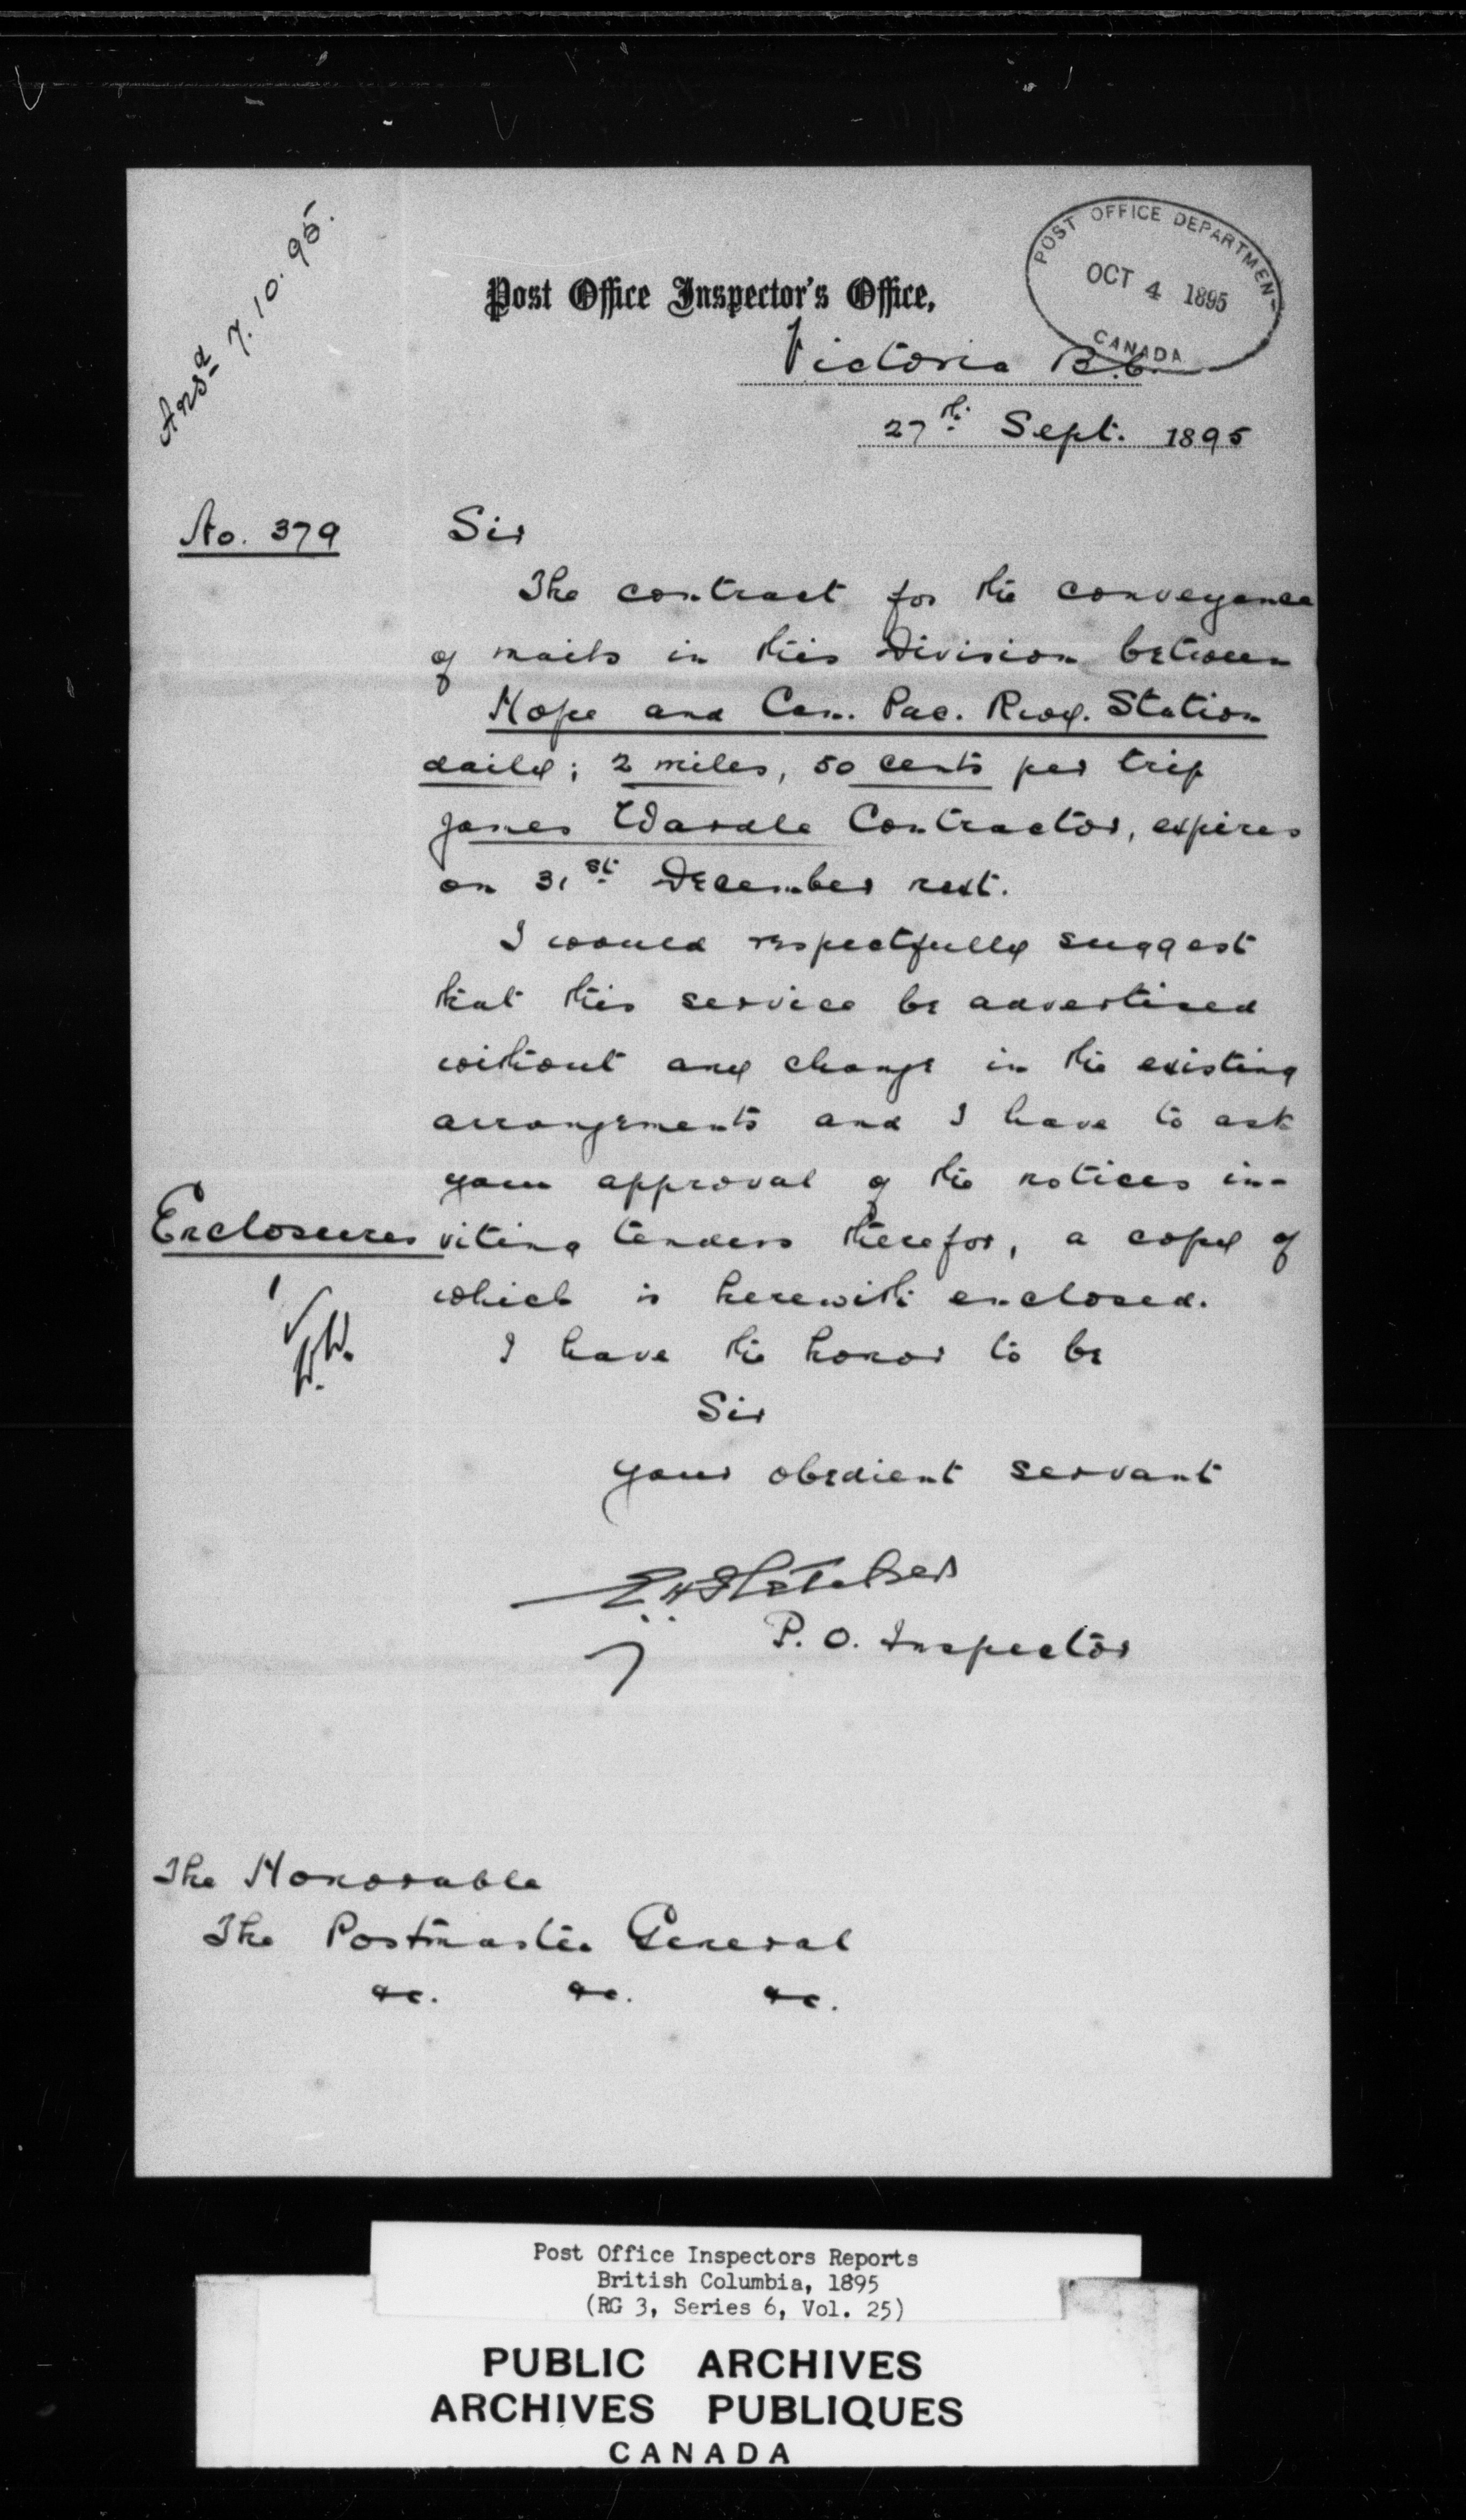 Ansd 7.10.95.
POST OFFICE DEPARTMENT
OCT 4 1895
CANADA
Post Office Inspector's Office,
Victoria B.C.
27th Sept. 1895
No. 379
Sir
The contract for the conveyance
of mails in this Division between
Hope and Can. Pac. Rwy. Station
daily; 2 miles, 50 cents per trip
James Wardle Contractor, expires
on 31st December next.
I would respectfully suggest
that this service be advertised
without any change in the existing
arrangements and I have to ask
your approval of the notices in-
Enclosures viting tenders therefor, a copy of
which is herewith enclosed.
I have the honor to be
Sir
your obedient servant
E.H. Fletcher
P. O. Inspector
The Honorable
The Postmaster General
&c. &c. &c.
Post Office Inspectors Reports
British Columbia, 1895
(RG 3, Series 6, Vol. 25)
PUBLIC ARCHIVES
ARCHIVES PUBLIQUES
CANADA